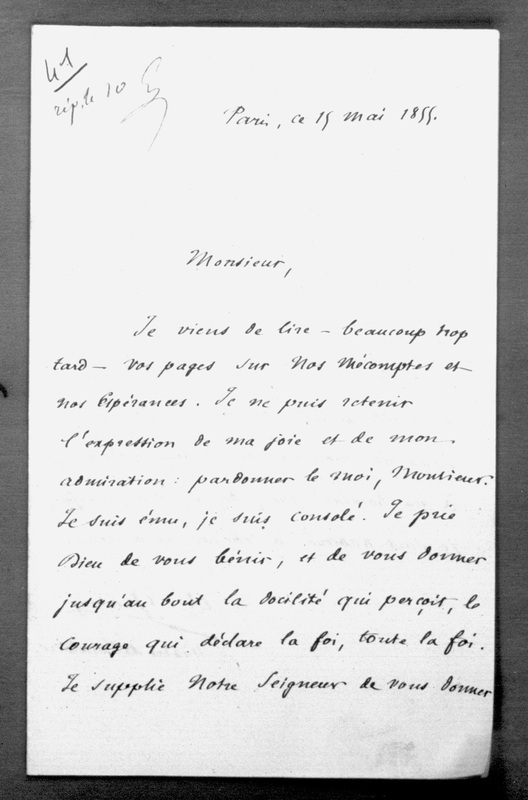 41
rép. le 10
Paris, ce 15 mai 1855.
Monsieur,
Je viens de lire – beaucoup trop
tard – vos pages sur Nos Mécomptes et
nos Espérances. Je ne puis retenir
l'expression de ma joie et de mon
admiration : pardonner le moi, Monsieur.
Je suis ému, je suis consolé. Je prie
Dieu de vous bénir, et de vous donner
jusqu'au bout la docilité qui perçoit, le
courage qui déclare la foi, toute la foi.
Je supplie Notre Seigneur de vous donner